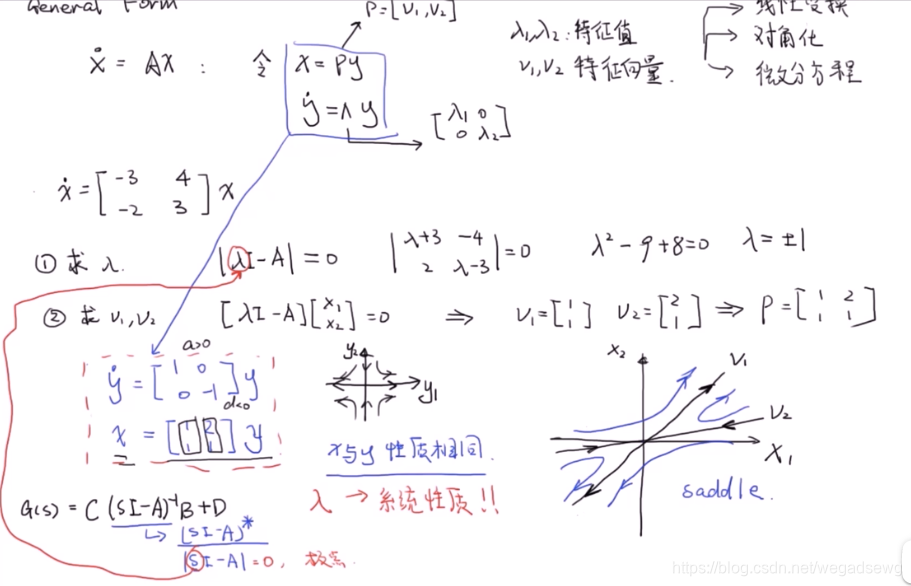 General Form
P=[v₁,v₂]
ẋ = AX : 令 x = Py
ẏ = Λ y
[λ₁ 0
0 λ₂]
λ₁,λ₂: 特征值
v₁,v₂ 特征向量.
线性变换
对角化
微分方程
ẋ = [-3 4
-2 3] x
① 求 λ. |λI-A| = 0 |λ+3 -4
2 λ-3| = 0 λ²-9+8=0 λ=±1
② 求 v₁,v₂ [λI-A][x₁
x₂] = 0 ⇒ v₁=[1
1] v₂=[2
1] ⇒ P=[1 2
1 1]
a>0
ẏ = [1 0
0 -1] y
d<0
x = [ ] y
y₂
y₁
x与y 性质相同
λ → 系统性质!!
x₂
v₁
v₂
x₁
saddle.
G(s) = C (SI-A)⁻¹B+D
(SI-A)*
|SI-A|=0, 极点.
https://blog.csdn.net/wegadsewg